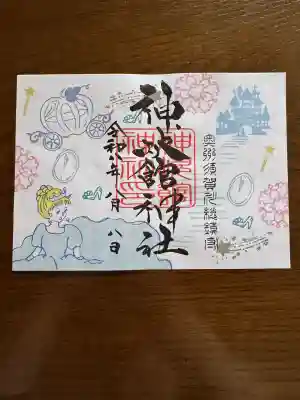 奥州須賀川総鎮守
神炊館神社
令和 年 八月 八日